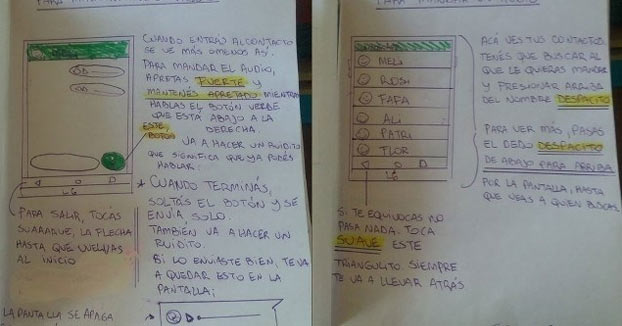 PARA MANDAR UN AUDIO
CUANDO ENTRÁS AL CONTACTO
SE VE MÁS O MENOS ASÍ.
PARA MANDAR EL AUDIO,
APRETAS FUERTE Y
MANTENÉS APRETADO MIENTRAS
HABLAS EL BOTÓN VERDE
QUE ESTÁ ABAJO A LA
DERECHA.
ESTE
BOTON
VA A HACER UN RUIDITO
QUE SIGNIFICA QUE YA PODÉS
HABLAR.
LG
* CUANDO TERMINÁS,
SOLTÁS EL BOTÓN Y SE
ENVÍA SOLO.
TAMBIÉN VA A HACER UN
RUIDITO.
SI LO ENVIASTE BIEN, TE VA
A QUEDAR ESTO EN LA
PANTALLA:
PARA SALIR, TOCÁS
SUAAAAVE, LA FLECHA
HASTA QUE VUELVAS
AL INICIO
LA PANTALLA SE APAGA
MELI
ROSH
FAFA
ALI
PATRI
FLOR
LG
ACÁ VES TUS CONTACTOS.
TENÉS QUE BUSCAR AL
QUE LE QUIERAS MANDAR
Y PRESIONAR ARRIBA
DEL NOMBRE DESPACITO
PARA VER MÁS, PASAS
EL DEDO DESPACITO
DE ABAJO PARA ARRIBA
POR LA PANTALLA, HASTA
QUE VEAS A QUIEN BUSCAS.
SI TE EQUIVOCAS NO
PASA NADA. TOCA
SUAVE ESTE
TRIANGULITO. SIEMPRE
TE VA A LLEVAR ATRÁS